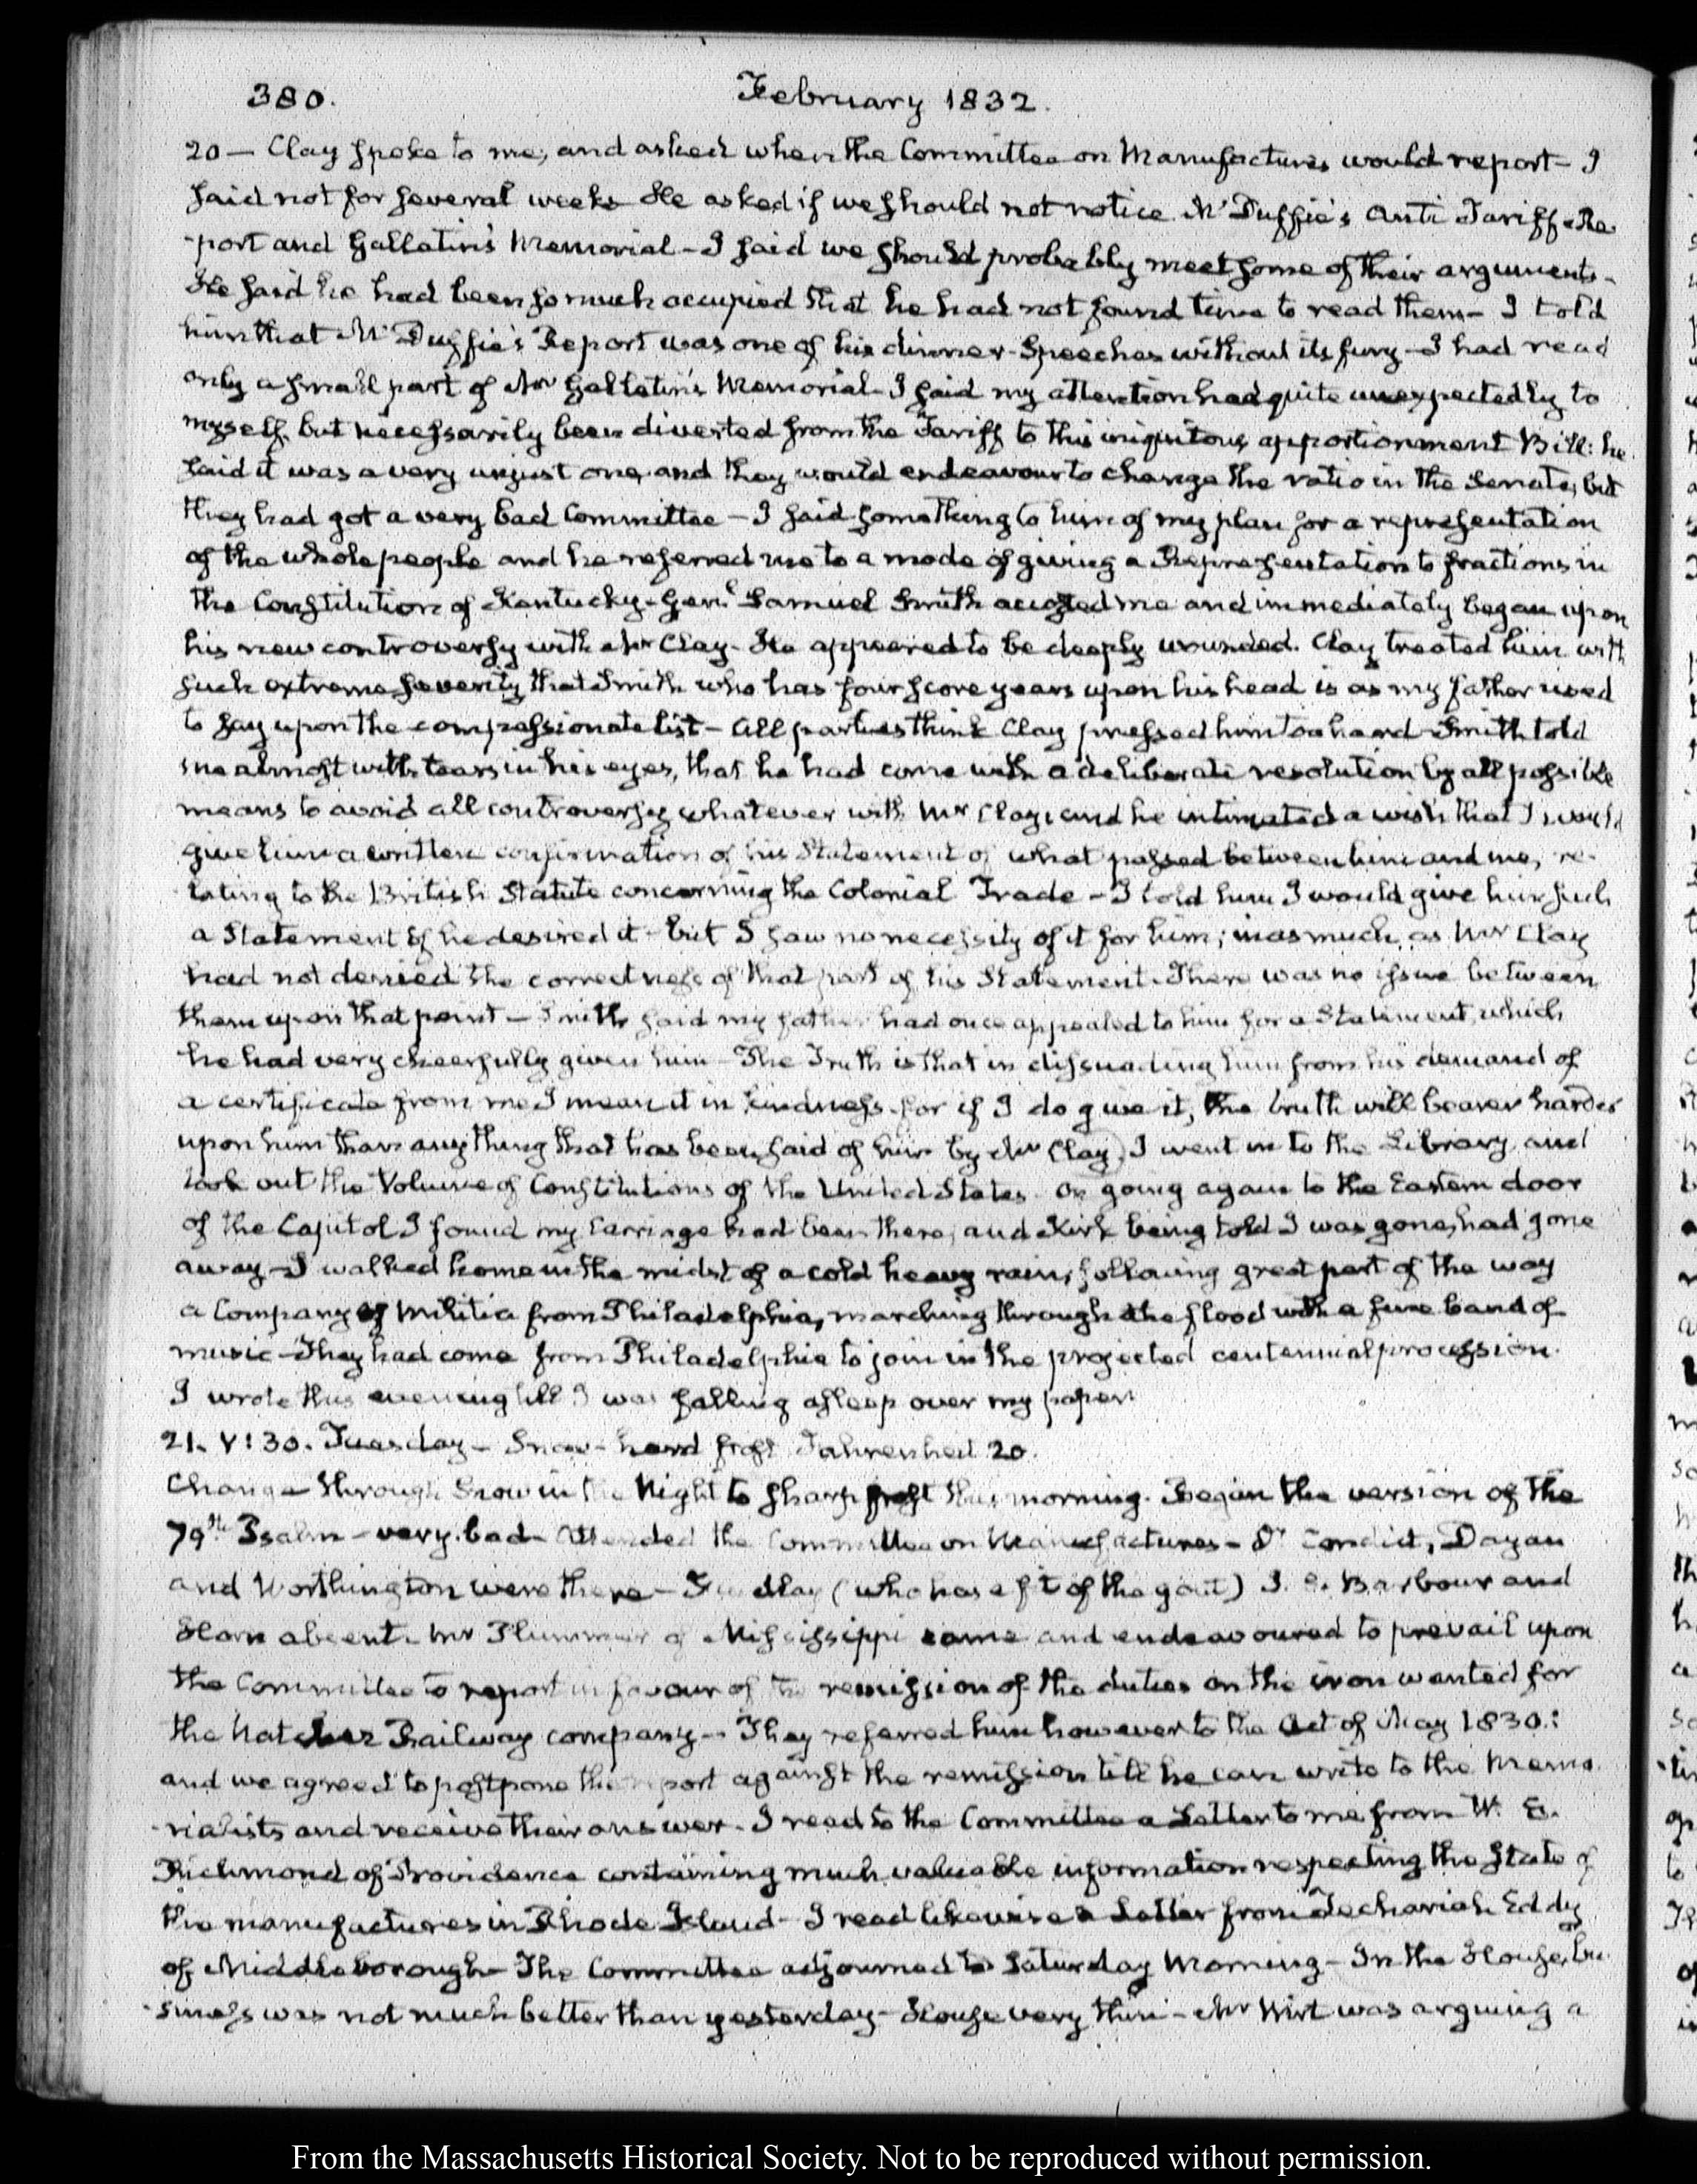 380.
February 1832.
20 — Clay spoke to me, and asked when the Committee on Manufactures would report – I
said not for several weeks He asked if we should not notice McDuffie's Anti Tariff Re-
-port and Gallatin's Memorial – I said we should probably meet some of their arguments –
He said he had been so much occupied that he had not found time to read them – I told
him that McDuffie's Report was one of his dinner-Speeches without its fury – I had read
only a small part of Mr Gallatin's Memorial – I said my attention had quite unexpectedly to
myself, but necessarily been diverted from the Tariff to this iniquitous apportionment Bill: he
said it was a very unjust one, and they would endeavour to change the ratio in the Senate, but
they had got a very bad Committee — I said something to him of my plan for a representation
of the whole people and he referred me to a mode of giving a Representation to fractions in
the Constitution of Kentucky – Genl. Samuel Smith accosted me and immediately began upon
his new controversy with Mr Clay – He appeared to be deeply wounded. Clay treated him with
such extreme severity that Smith who has four score years upon his head is as my father used
to say upon the compassionate list – All parties think Clay pressed him too hard – Smith told
me almost with tears in his eyes, that he had come with a deliberate resolution by all possible
means to avoid all controversy whatever with Mr Clay, and he intimated a wish that I would
give him a written confirmation of his Statement of what passed between him and me, re-
-lating to the British Statute concerning the Colonial Trade – I told him I would give him such
a Statement if he desired it – but I saw no necessity of it for him; inasmuch, as Mr Clay
had not denied the correctness of that part of his Statement. There was no issue between
them upon that point — Smith said my father had once appealed to him for a Statement, which
he had very cheerfully given him – The Truth is that in dissuading him from his demand of
a certificate from me I mean it in kindness – for if I do give it, the truth will bear harder
upon him than any thing that has been said of him by Mr Clay. I went in to the Library and
took out the Volume of Constitutions of the United States. On going again to the Eastern door
of the Capitol I found my Carriage had been there, and Kirk being told I was gone, had gone
away – I walked home in the midst of a cold heavy rain, following great part of the way
a Company of Militia from Philadelphia, marching through the flood with a fine band of
music – They had come from Philadelphia to join in the projected centennial procession.
I wrote this evening till I was falling asleep over my paper.
21. V:30. Tuesday – Snow – hard frost Fahrenheit 20.
Change through Snow in the Night to sharp frost this morning. Began the version of the
79th Psalm – very bad – Attended the Committee on Manufactures – Dr Condict, Dayan
and Worthington were there – Findlay (who has a fit of the gout) J. S. Barbour and
Horn absent. Mr Plummer of Mississippi came and endeavoured to prevail upon
the Committee to report in favour of the remission of the duties on the iron wanted for
the Natchez Railway company – They referred him however to the Act of May 1830.:
and we agreed to postpone the report against the remission till he can write to the Memo-
-rialists and receive their answer. I read to the Committee a Letter to me from W. E.
Richmond of Providence containing much valuable information respecting the State of
the manufactures in Rhode Island – I read likewise a Letter from Zechariah Eddy
of Middleborough – The Committee adjourned to Saturday Morning – In the House, bu-
-siness was not much better than yesterday – House very thin – Mr Wirt was arguing a
From the Massachusetts Historical Society. Not to be reproduced without permission.